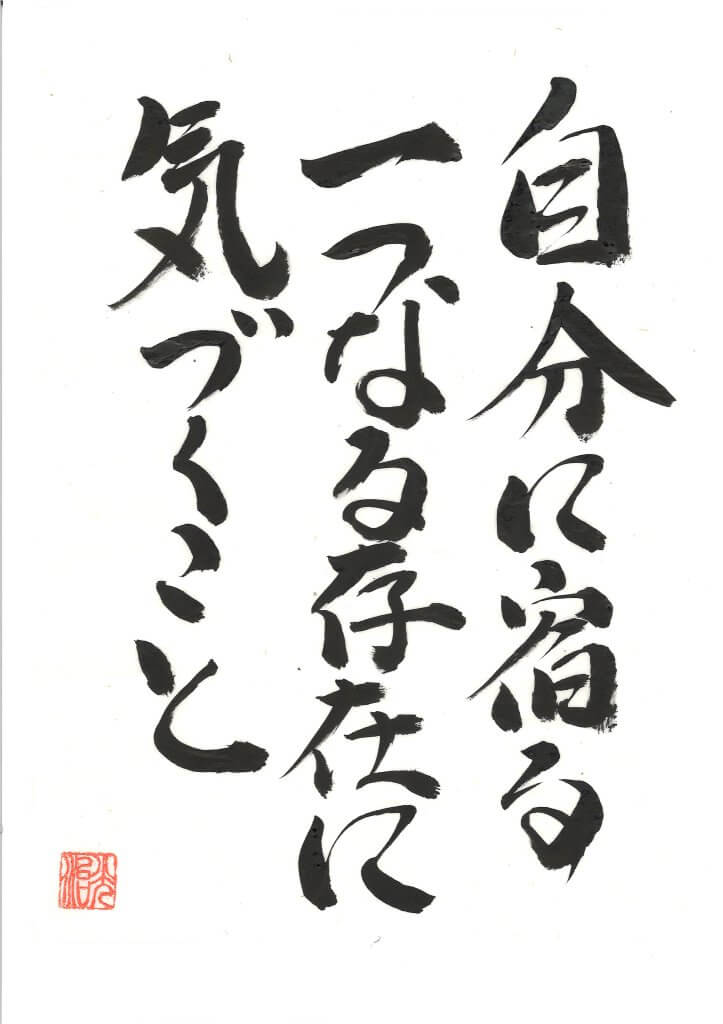 自分に宿る
一つなる存在に
気づくこと